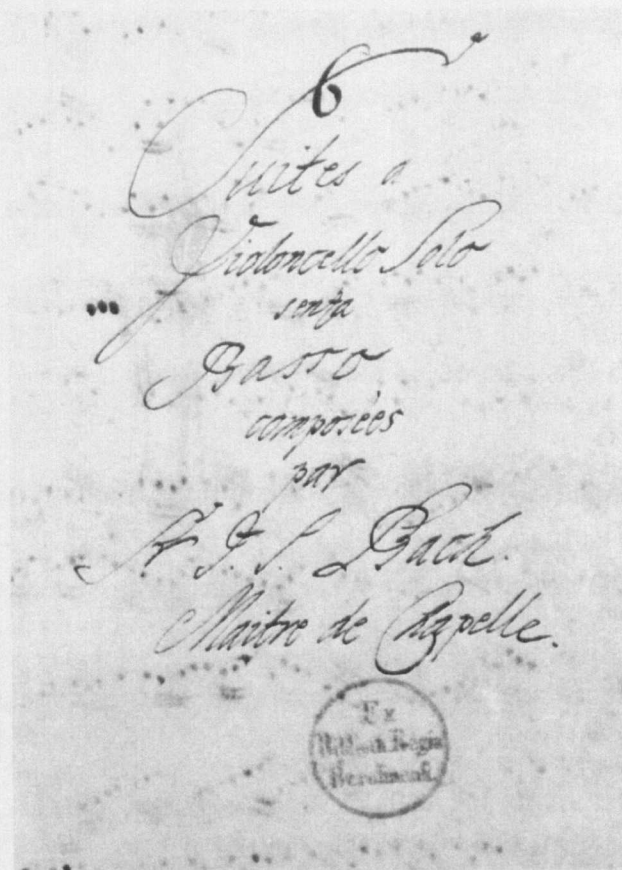 6
Suites a
Violoncello Solo
senza
Basso
composées
par
Sr. J. S. Bach.
Maitre de Chapelle.
Ex
Biblioth. Regia
Berolinensi.